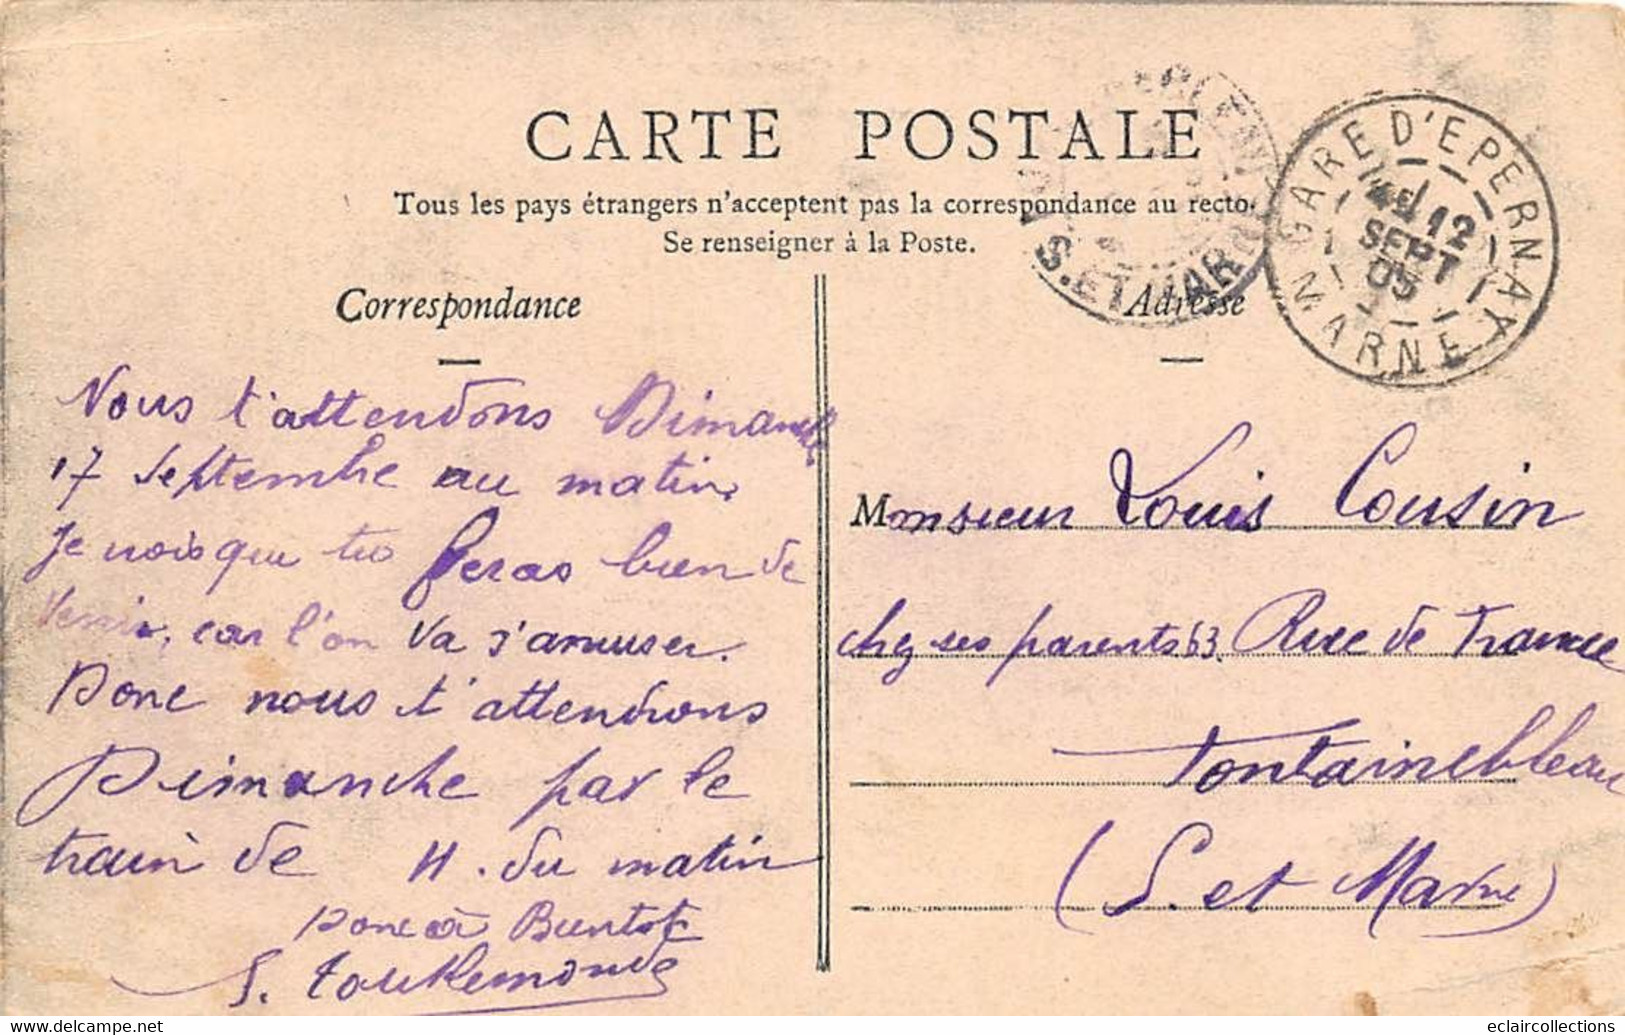 CARTE POSTALE
Tous les pays étrangers n'acceptent pas la correspondance au recto.
Se renseigner à la Poste.
Correspondance
Nous t'attendons Dimanche
17 Septembre au matin.
Je vois que tu feras bien de
venir, car l'on va s'amuser.
Donc nous t'attendrons
Dimanche par le
train de 11 . du matin
Donc à Bientot
S.
Adresse
Monsieur Louis Cousin
chez ses parents 63. Rue de France
Fontainebleau
(S. et Marne)
S. ET MARNE
GARE D'EPERNAY
12
SEPT
05
MARNE
www.delcampe.net
eclaircollections